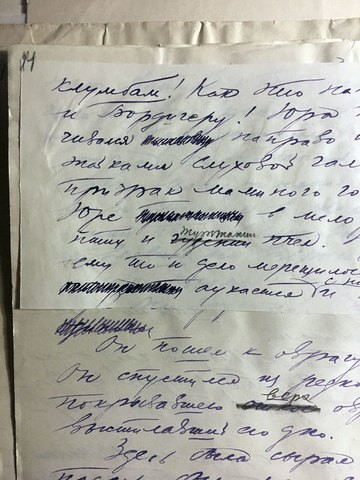 клумбам! Как это на
и Бордигеру! Юра
чивался направо
знаками слуховой гал
призрак маминого го
Юре в мело
птиц и жужжании пчел.
ему то и дело мерещилось
аукается и
Он пошел к оврагу
Он спустился из редко
покрывавшего верх ов
выстилавший его дно.
Здесь было сыро